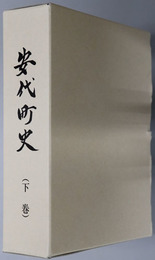 安代町史
（下巻）